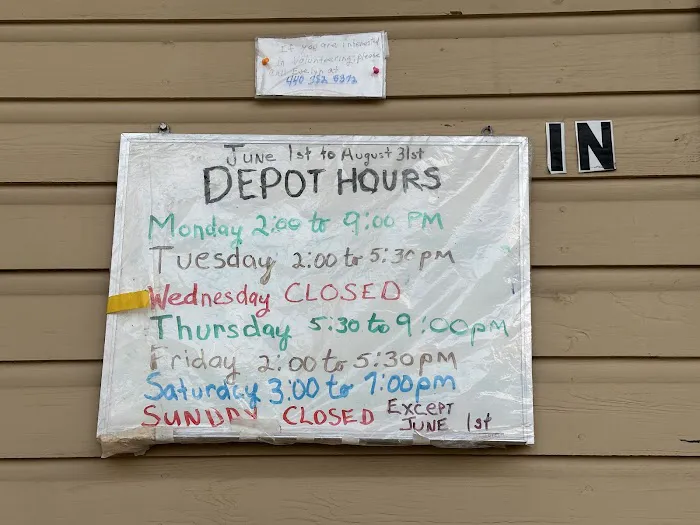 If you are interested
in volunteering, please
at
440 352
IN
June 1st to August 31st
DEPOT HOURS
Monday 2:00 to 9:00 PM
Tuesday 2:00 to 5:30 pm
Wednesday CLOSED
Thursday 5:30 to 9:00 pm
Friday 2:00 to 5:30 pm
Saturday 3:00 to 7:00 pm
SUNDAY CLOSED EXCEPT
JUNE 1st